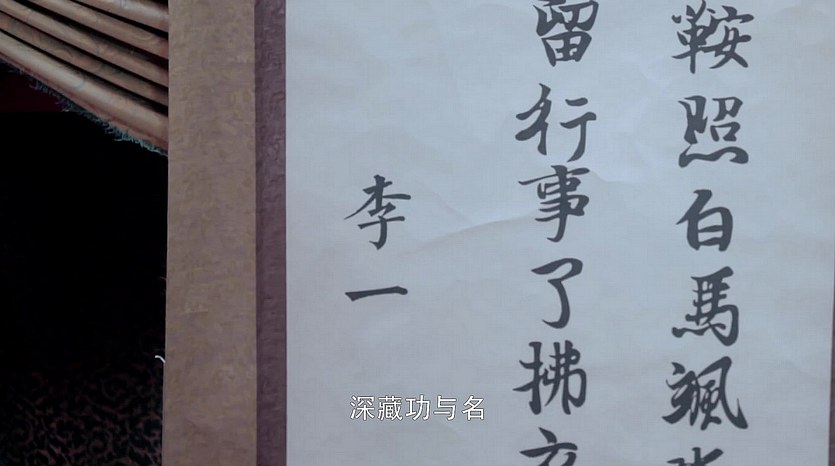 鞍照白馬颯
留行事了拂
李一
深藏功与名